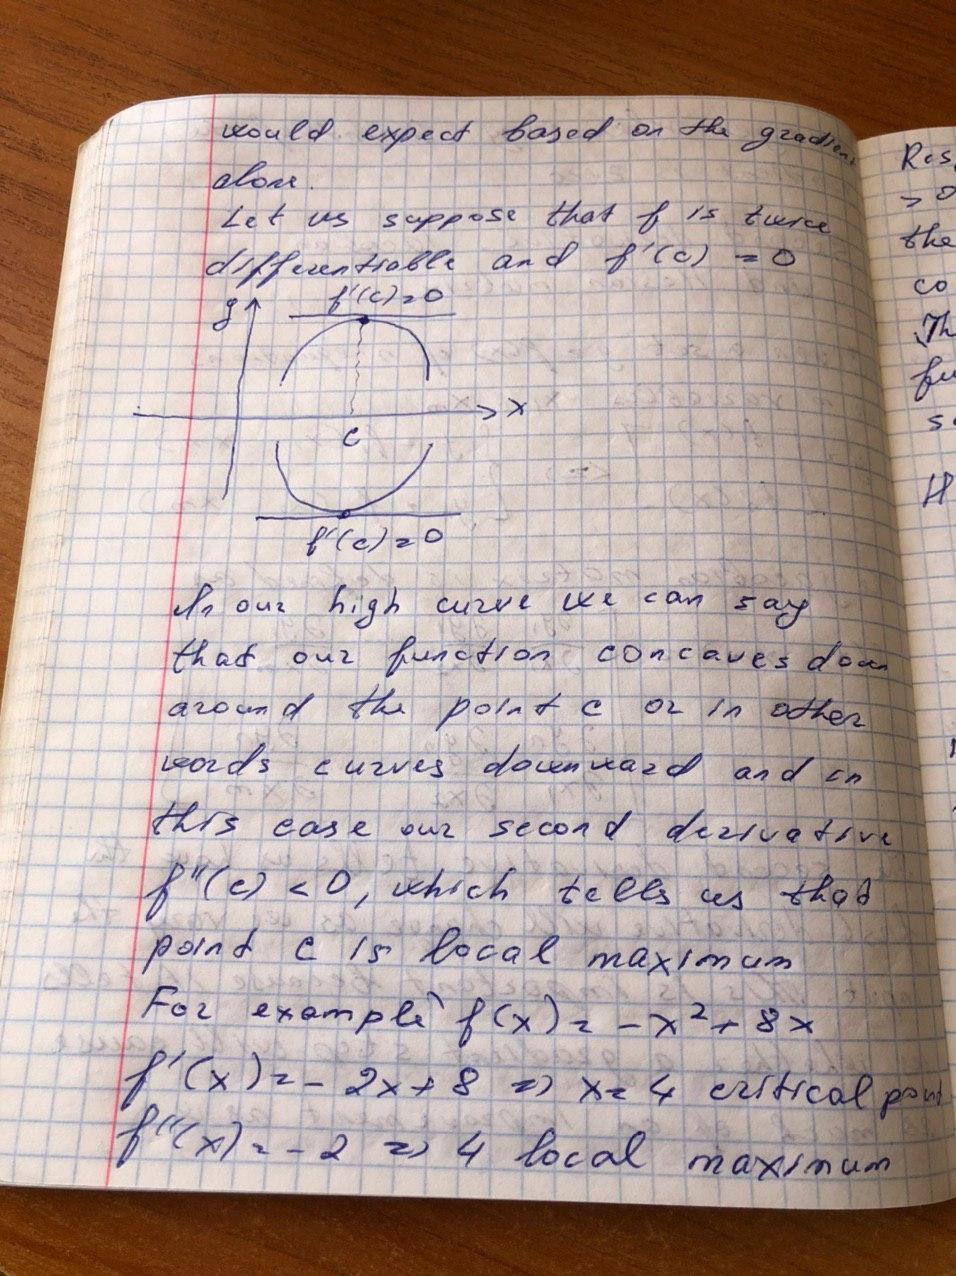 would expect based on the gradient
alone.
Let us suppose that f is twice
differentiable and f'(c) = 0
f'(c)=0
y
x
c
f'(c)=0
In our high curve we can say
that our function concaves down
around the point c or in other
words curves downward and in
this case our second derivative
f''(c) < 0, which tells us that
point c is local maximum
For example f(x) = -x² + 8x
f'(x) = - 2x+8 => x=4 critical point
f''(x) = -2 => 4 local maximum
Res
> 0
the
co
Th
fu
so
H